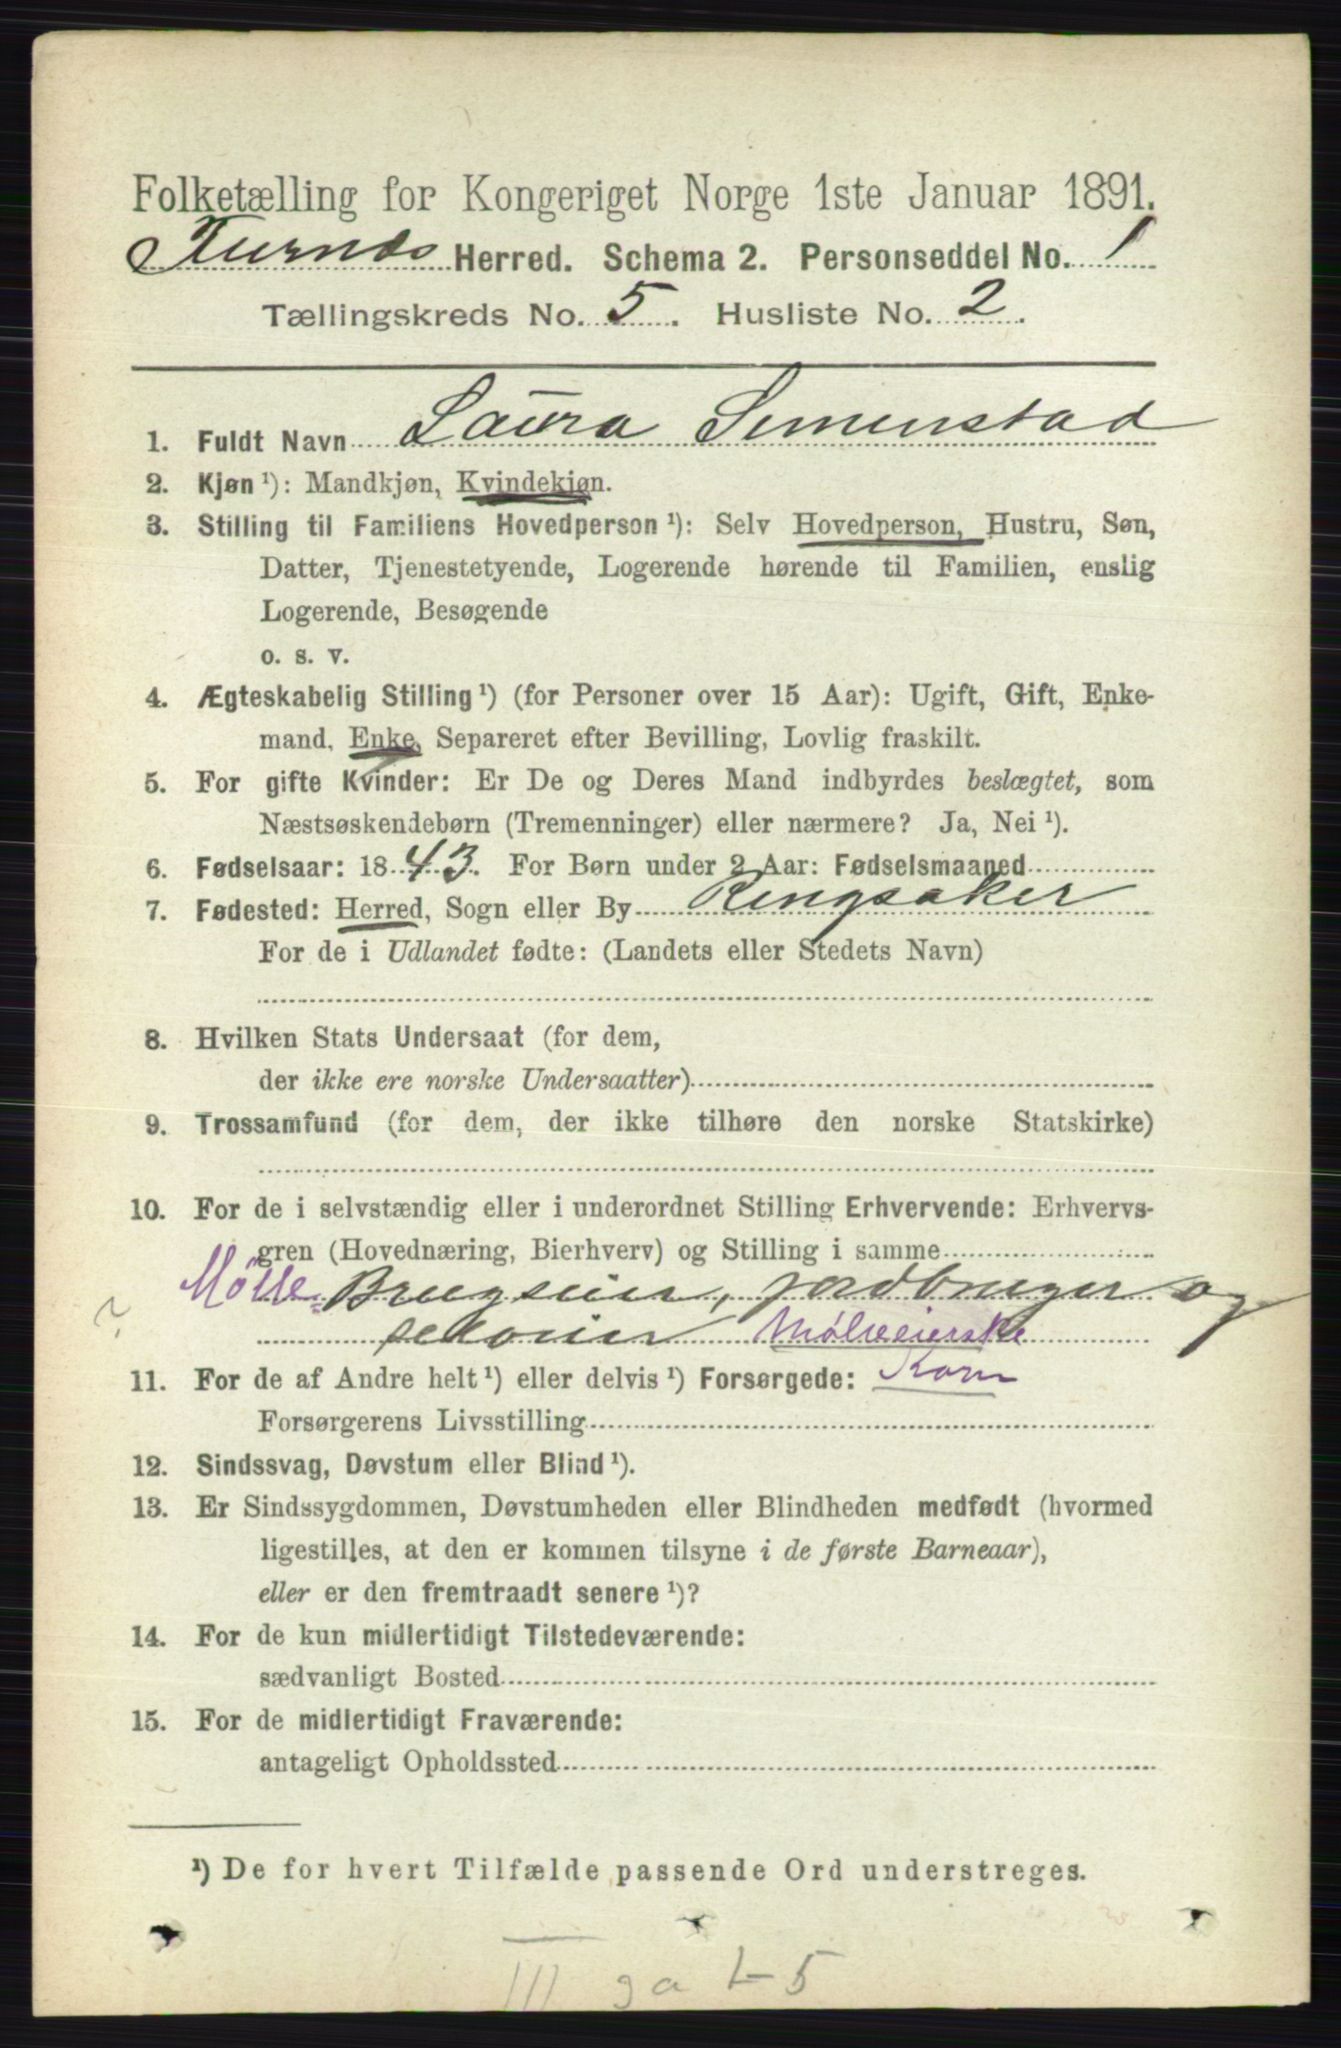 Folketælling for Kongeriget Norge 1ste Januar 1891.
Furnes Herred. Schema 2. Personseddel No. 1
Tællingskreds No. 5. Husliste No. 2.
1. Fuldt Navn Laura Simenstad
2. Kjøn ¹): Mandkjøn, Kvindekjøn.
3. Stilling til Familiens Hovedperson ¹): Selv Hovedperson, Hustru, Søn,
Datter, Tjenestetyende, Logerende hørende til Familien, enslig
Logerende, Besøgende
o. s. v.
4. Ægteskabelig Stilling ¹) (for Personer over 15 Aar): Ugift, Gift, Enke-
mand, Enke, Separeret efter Bevilling, Lovlig fraskilt.
5. For gifte Kvinder: Er De og Deres Mand indbyrdes beslægtet, som
Næstsøskendebørn (Tremenninger) eller nærmere? Ja, Nei ¹).
6. Fødselsaar: 1843. For Børn under 2 Aar: Fødselsmaaned
7. Fødested: Herred, Sogn eller By Ringsaker
For de i Udlandet fødte: (Landets eller Stedets Navn)
8. Hvilken Stats Undersaat (for dem,
der ikke ere norske Undersaatter)
9. Trossamfund (for dem, der ikke tilhøre den norske Statskirke)
10. For de i selvstændig eller i underordnet Stilling Erhvervende: Erhvervs-
gren (Hovednæring, Bierhverv) og Stilling i samme
Mølle- Brugseier, jordbruger og
? skoeier Mølleeierske
11. For de af Andre helt ¹) eller delvis ¹) Forsørgede: Korn
Forsørgerens Livsstilling
12. Sindssvag, Døvstum eller Blind ¹).
13. Er Sindssygdommen, Døvstumheden eller Blindheden medfødt (hvormed
ligestilles, at den er kommen tilsyne i de første Barneaar),
eller er den fremtraadt senere ¹)?
14. For de kun midlertidigt Tilstedeværende:
sædvanligt Bosted
15. For de midlertidigt Fraværende:
antageligt Opholdssted
¹) De for hvert Tilfælde passende Ord understreges.
III ga t-5